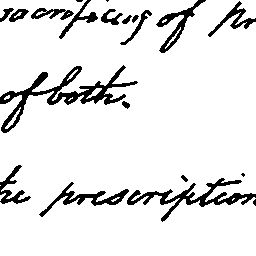 sacrificing of pr
of both.
the prescription